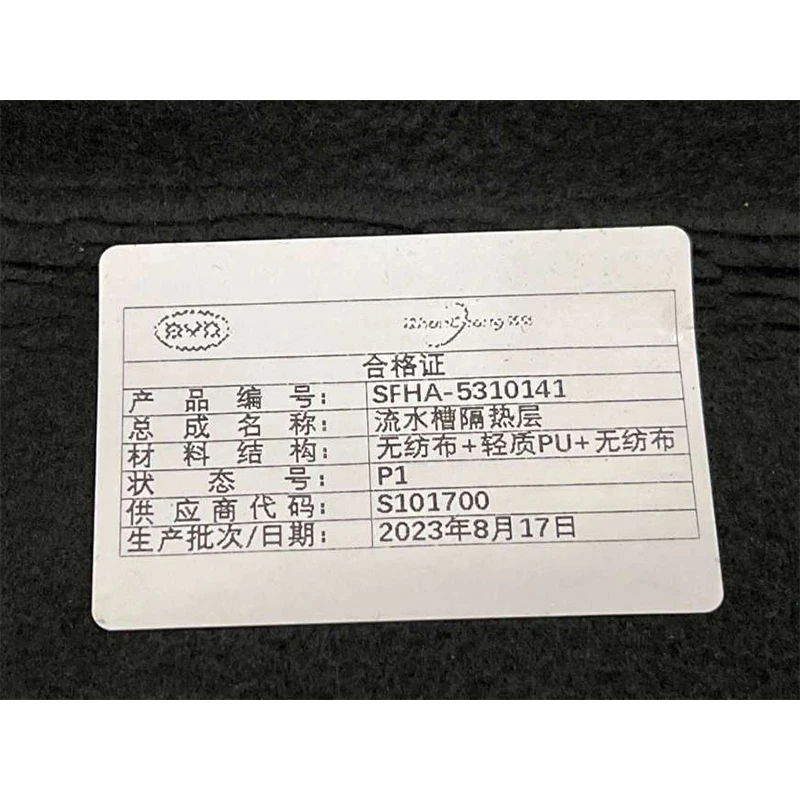 BYD
合格证
产品编号: SFHA-5310141
总成名称: 流水槽隔热层
材料结构: 无纺布+轻质PU+无纺布
状态号: P1
供应商代码: S101700
生产批次/日期: 2023年8月17日